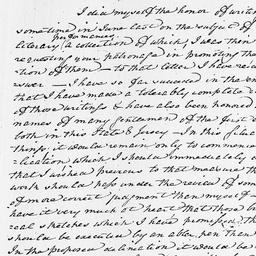 I did myself the honor of writin
sometime in June last on the subject of
pecuniary
literary (a collection of which I was then
requesting your patronage in promoting the
tion of them — to that letter I have recei
swer — I have so far succeeded in the
that I have made a tolerably complete c
of those writings & have also been honored
names of many gentlemen of the first
both in this State & Jersey — In this
things, it would remain only to commence
lication which I should immediately
that I wished previous to that measure th
work should pass under the review of some
of more correct judgment than myself
have it very much at heart that those
cal sketches which I have promised, th
should be executed by an abler pen than
In the proposed delineation it would be